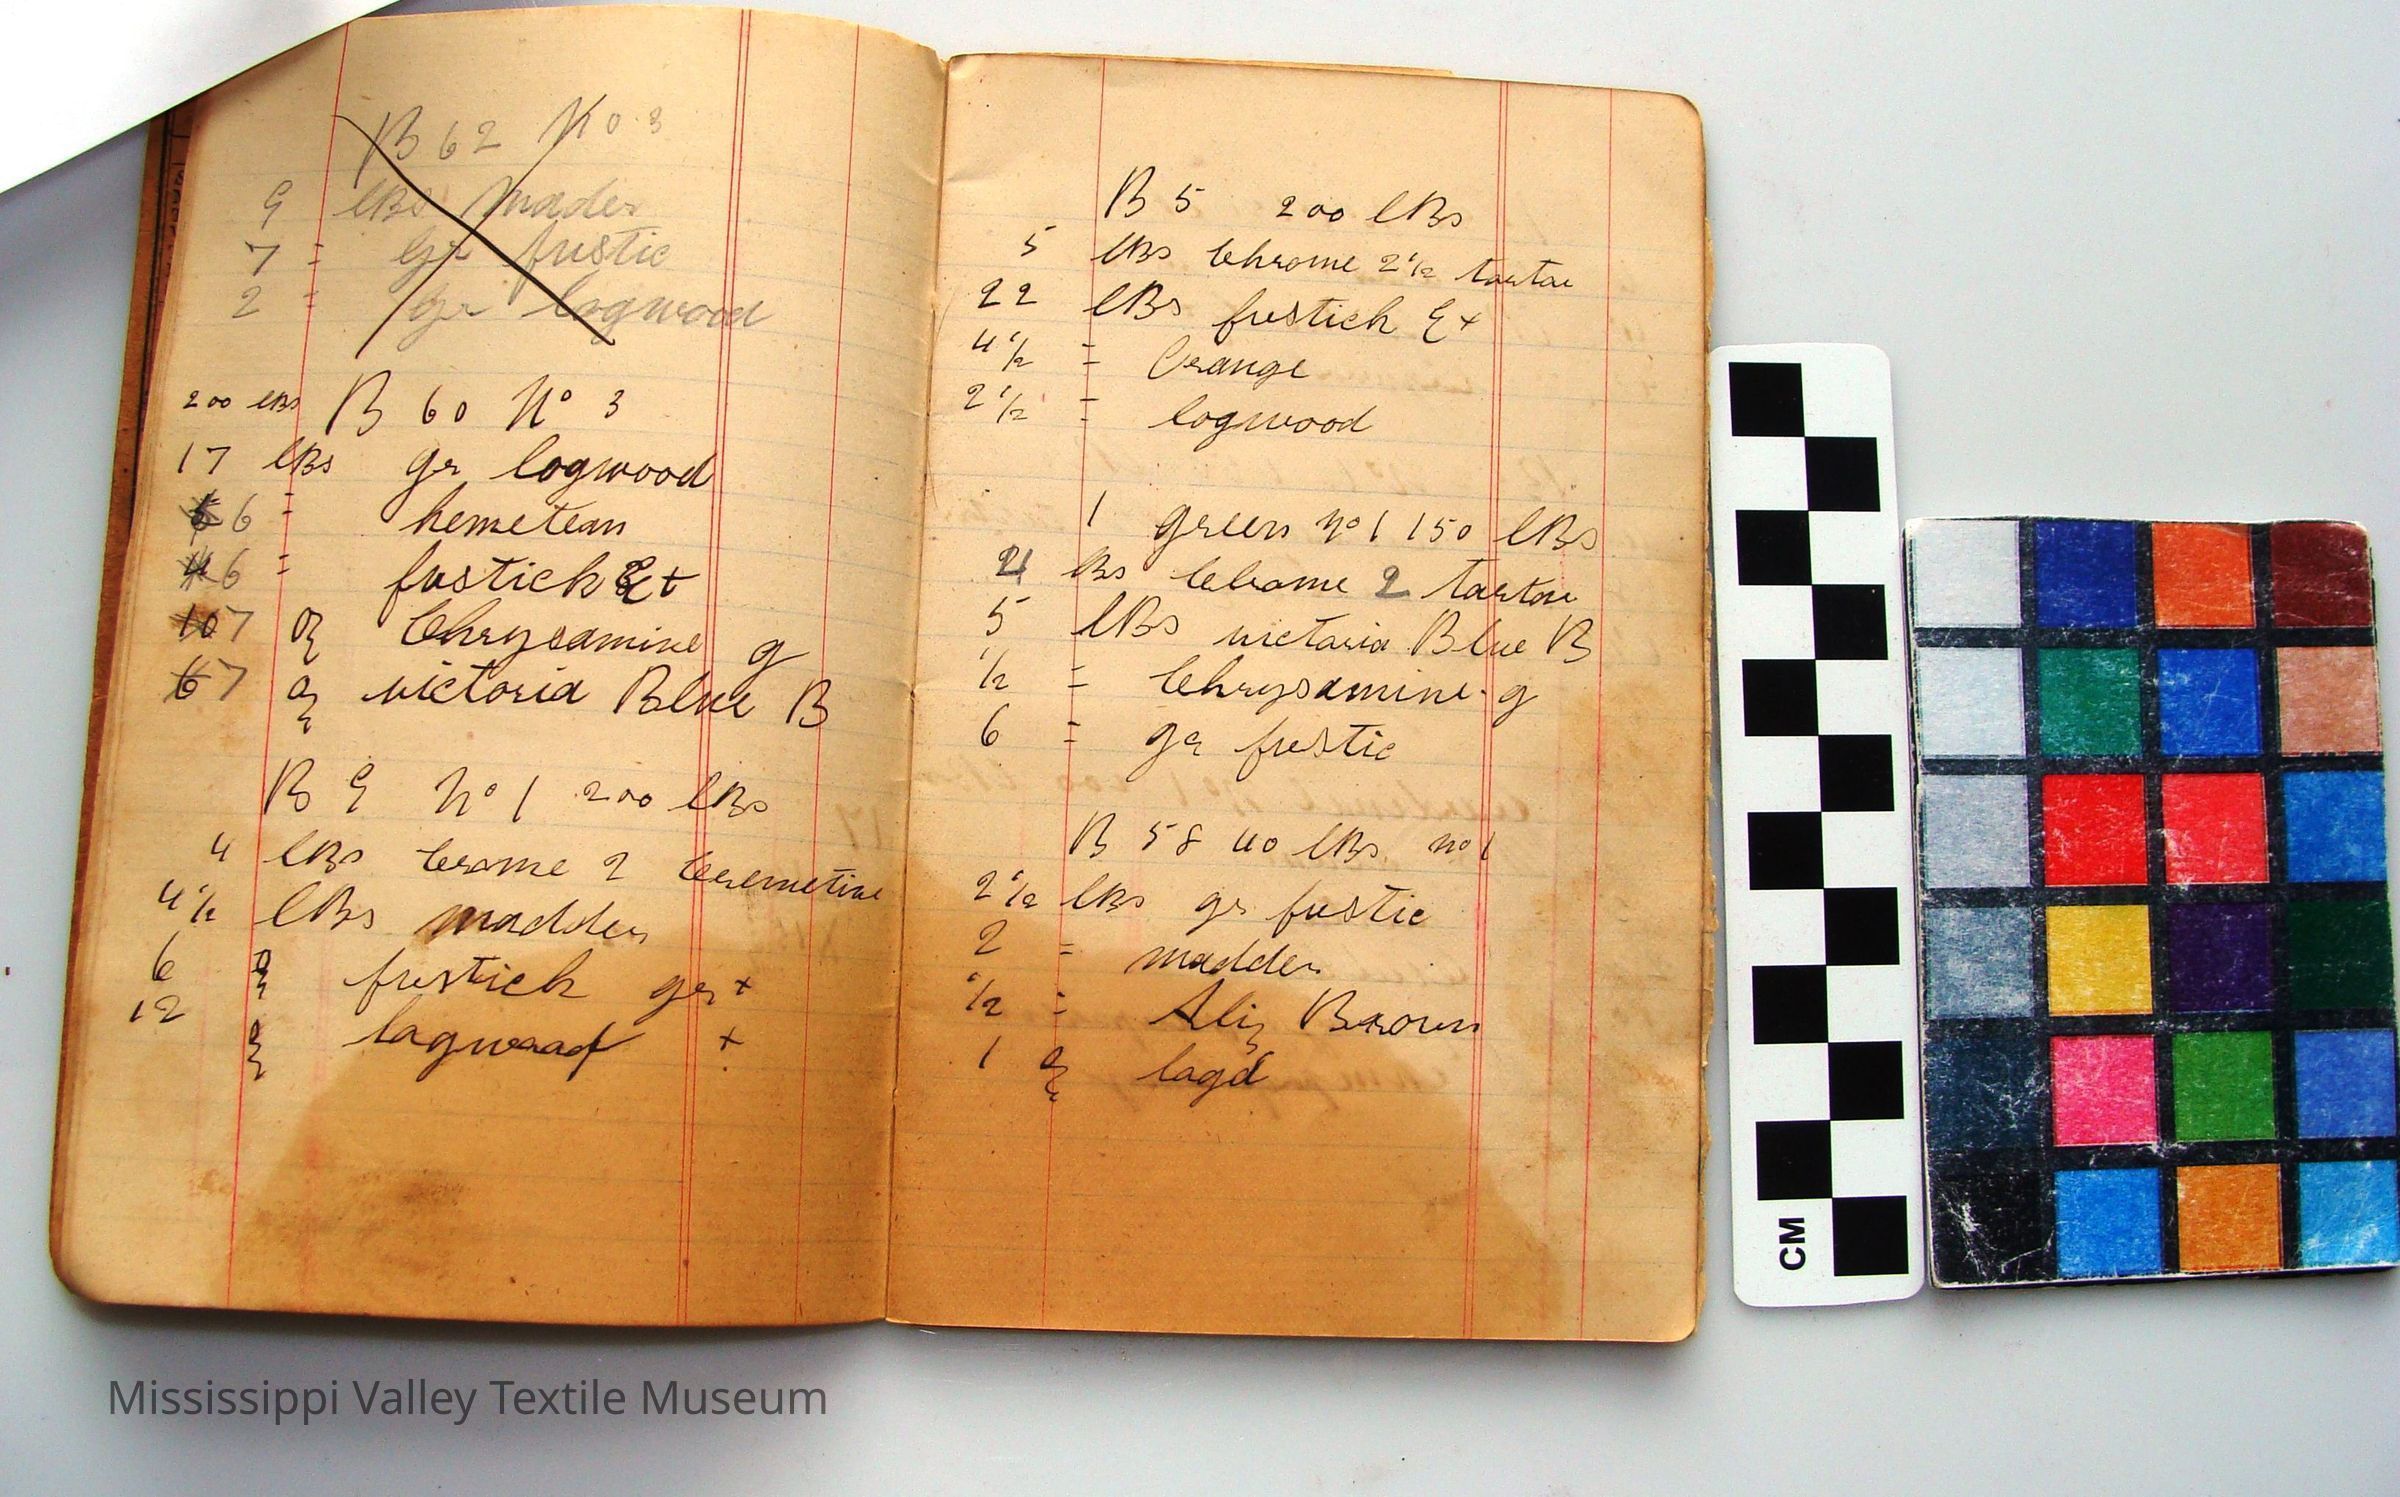 B 62 No 3
9 lBs Mader
7 = gr fustic
2 = gr logwood
200 lBs B 60 No 3
17 lBs gr logwood
6 = hemetean
6 = fustich Ext
7 oz Chrysamine g
7 oz victoria Blue B
B 9 No 1 200 lBs
4 lBs Crome 2
4 1/2 lBs madder
6 oz fustich gr +
12 oz lagwood +
B 5 200 lBs
5 lBs Chrome 2 1/2 tartar
22 lBs fustich Ex
4 1/2 = Orange
2 1/2 = logwood
1 green no 1 150 lBs
lBs Chrome 2 tartar
5 lBs victoria Blue B
1/2 = Chrysamine g
6 = gr fustic
B 58 40 lBs no 1
2 1/2 lBs gr fustic
2 = madder
1/2 = Aliz Brown
1 oz lagd
CM
Mississippi Valley Textile Museum